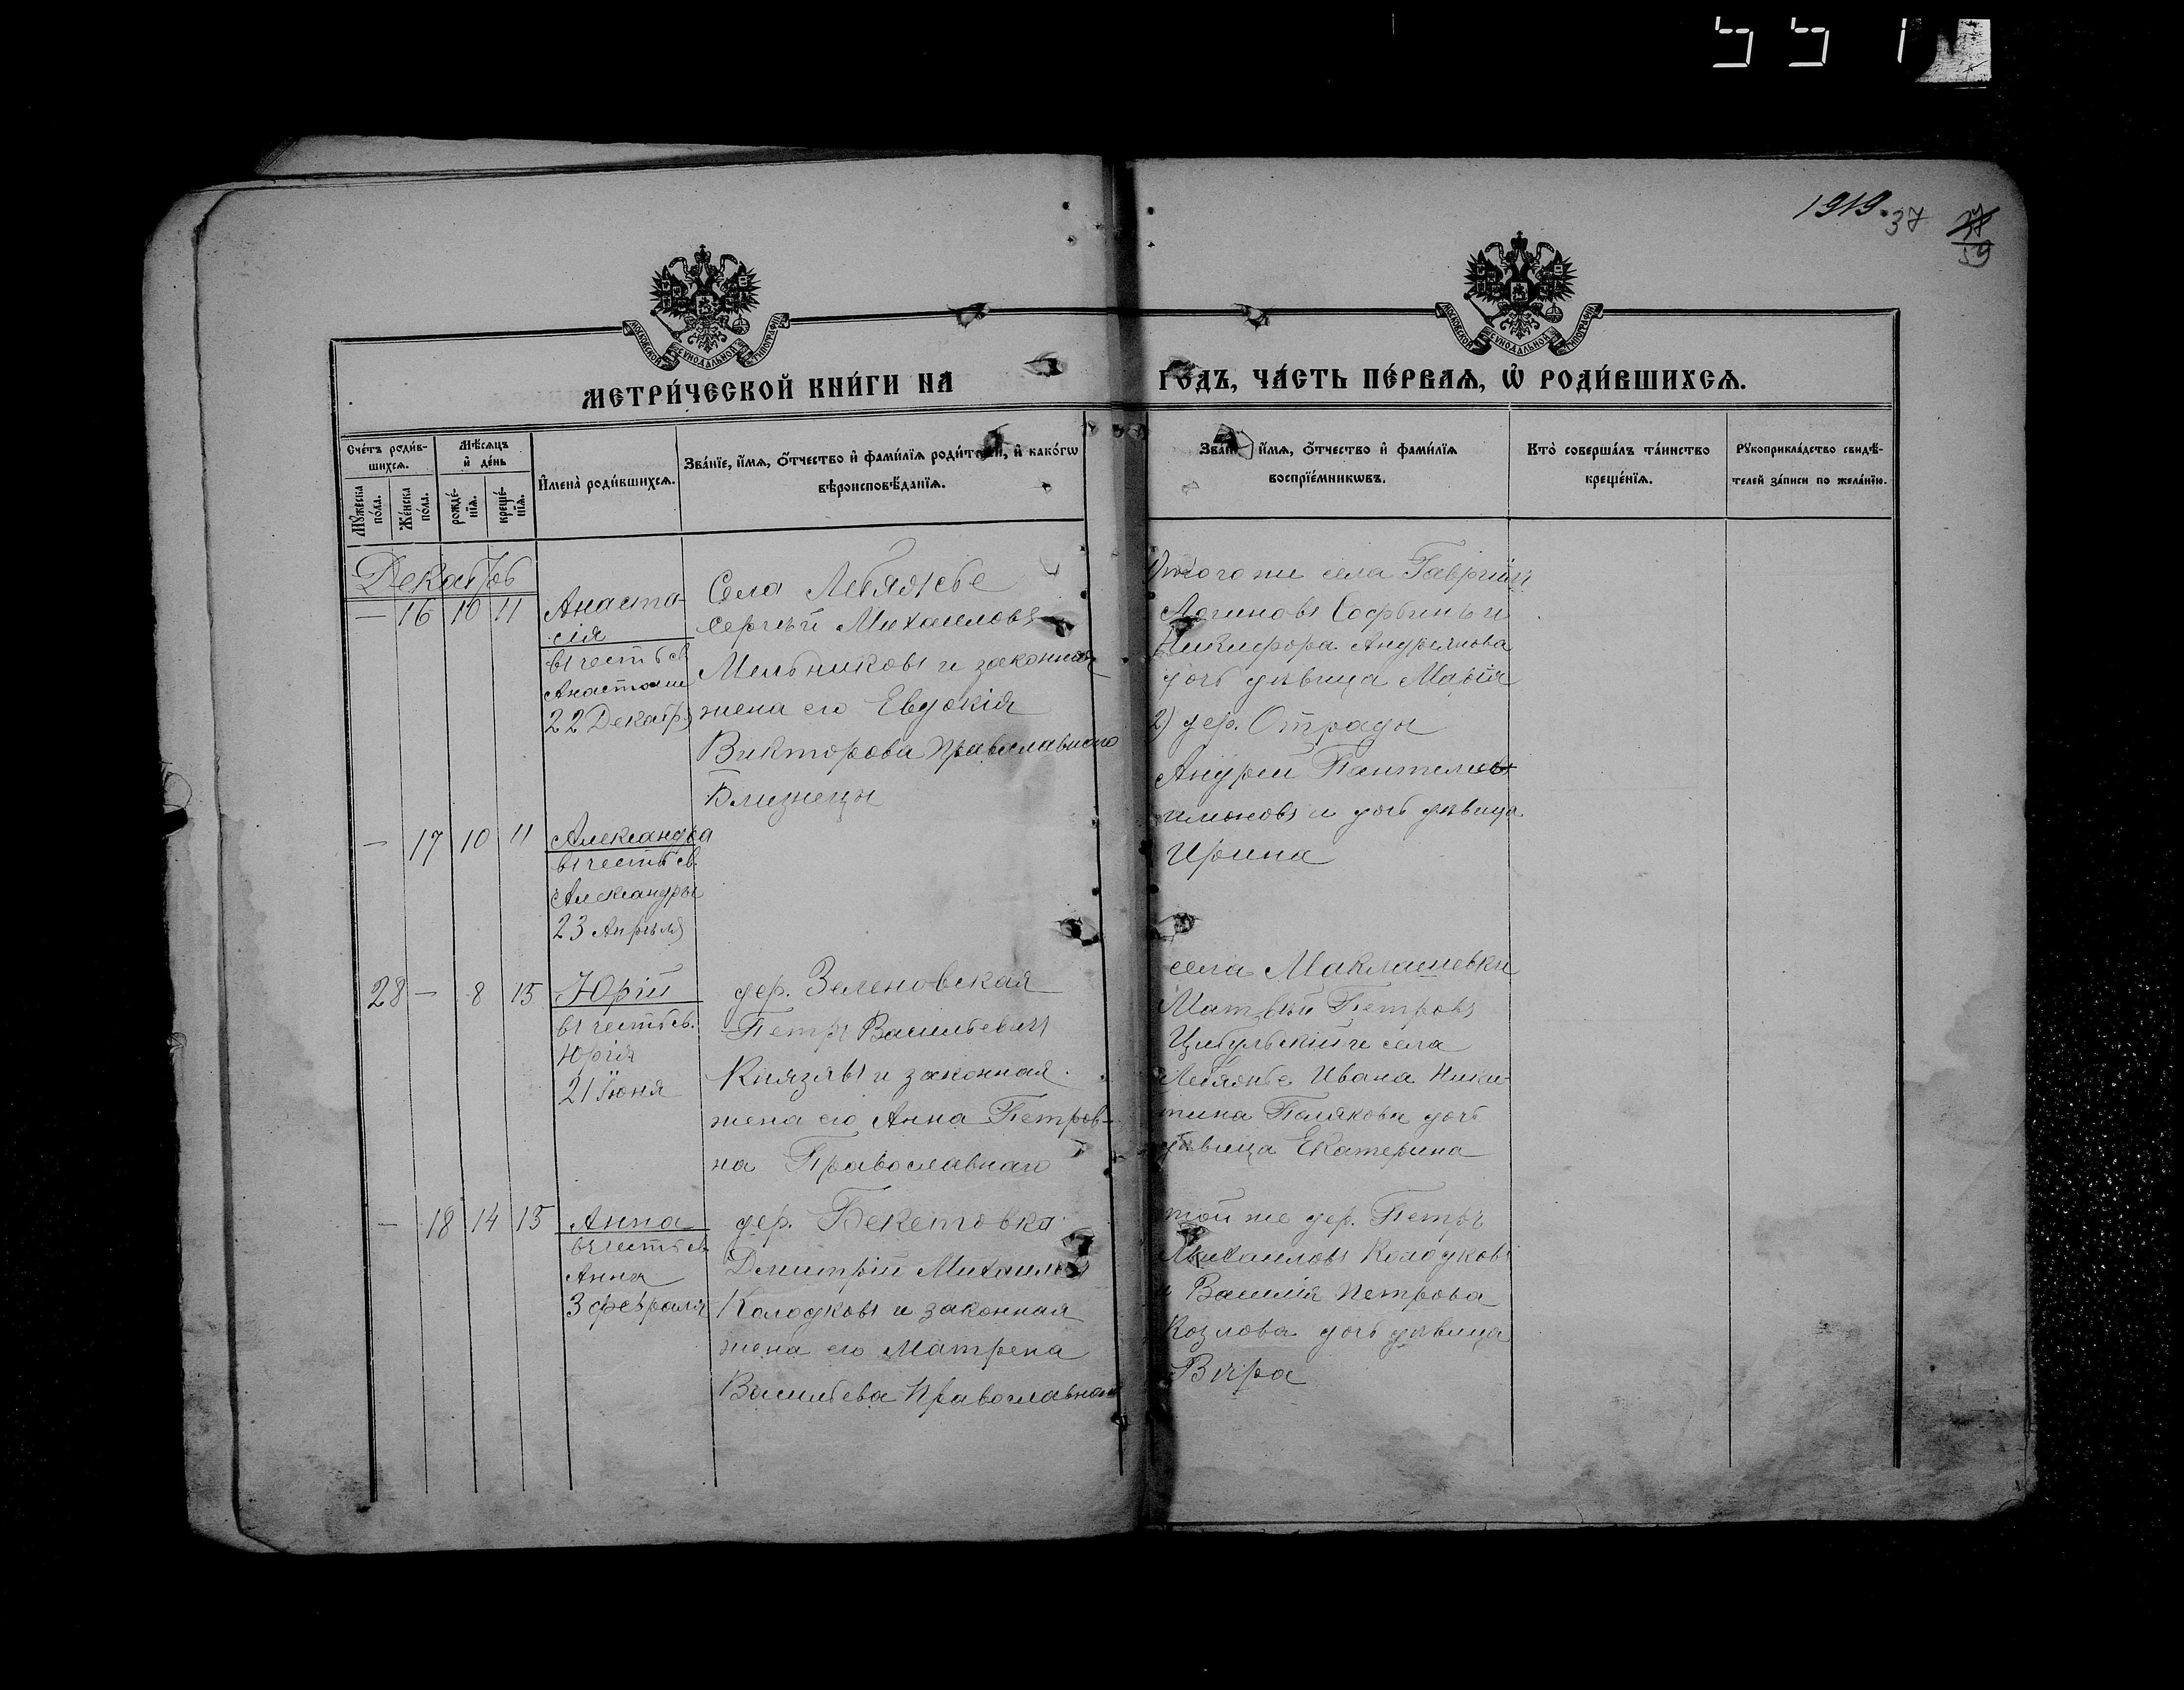 1919.
37
59
МОСКОВСКОЙ СѴНОДАЛЬНОЙ ТИПОГРАФІИ
МОСКОВСКОЙ СѴНОДАЛЬНОЙ ТИПОГРАФІИ
МЕТРИ́ЧЕСКОЙ КНИ́ГИ НА ГОДЪ, ЧА́СТЬ ПЕ́РВАѦ, Ѡ РОДИ́ВШИХСѦ.
Сче́тъ роди́в-
шихсѧ.
Мꙋжеска по́ла.
Же́нска по́ла.
Мѣ́сѧцъ
и де́нь
рожде́-
нїѧ.
креще́-
нїѧ.
Имена̀ роди́вшихсѧ.
Зва́нїе, и́мѧ, ѻ́тчество и фами́лїѧ роди́телей, и како́гѡ
вѣроисповѣ́данїѧ.
Зва́нїе, и́мѧ, ѻ́тчество и фами́лїѧ
воспрїе́мникѡвъ.
Кто̀ соверша́лъ та́инство
креще́нїѧ.
Рꙋкоприкла́дство свидѣ́-
телей за́писи по жела́нїю.
Декабрь
— 16 10 11
Анаста-
сія
въ честь св.
Анастасіи
22 Декабр.
Села Лебяжье
Сергѣй Михаиловъ
Мельниковъ и законная
жена его Евдокія
Викторова Православного
Близнецы
того же села
Логиновъ и
Никифора Андреянова
дочь дѣвица Марія
2) дер. Отрады
Андрей
и дочь дѣвица
Ирина
— 17 10 11
Александра
въ честь св.
Александры
23 Апрѣля
28 — 8 15
Юрій
въ честь св.
Юрія
21 Іюня
дер. Зеленовская
Петръ Васильевичъ
Князявъ и законная
жена его Анна Петров-
на Православнаго
села Маклашевки
Матвѣй Петровъ
Цибульскій и села
Лебяжье Ивана Ники-
тина Полякова дочь
дѣвица Екатерина
— 18 14 15
Анна
въ честь св.
Анна
3 февраля
дер. Бекетовка
Димитрій Михаиловъ
Колодковъ и законная
жена его Матрена
Васильева Православнаго
той же дер. Петръ
Михаиловъ Колодковъ
и Василія Петрова
Козлова дочь дѣвица
Вѣра